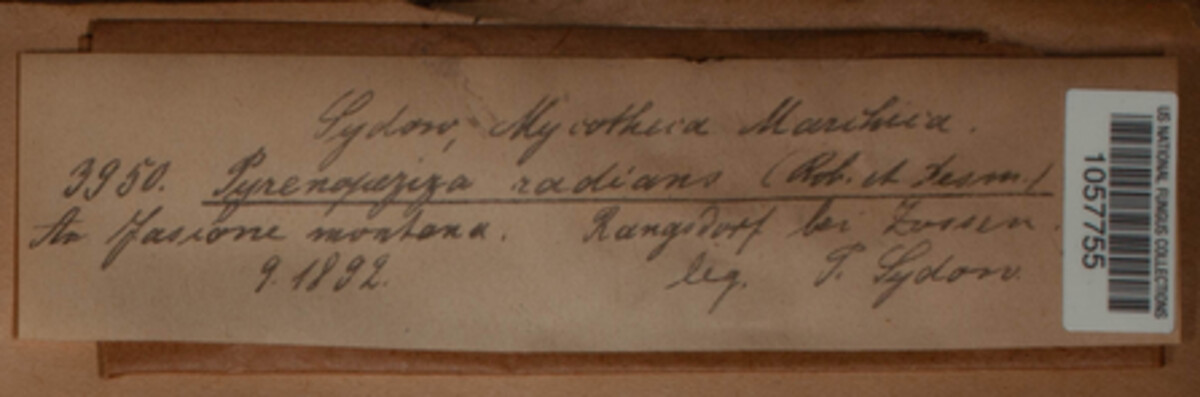 Sydow, Mycotheca Marchica.
3950. Pyrenopeziza radians (Rob. et Desm.)
An Jasione montana. Rangsdorf bei Zossen.
9. 1892. leg. P. Sydow.
US NATIONAL FUNGUS COLLECTIONS
1057755